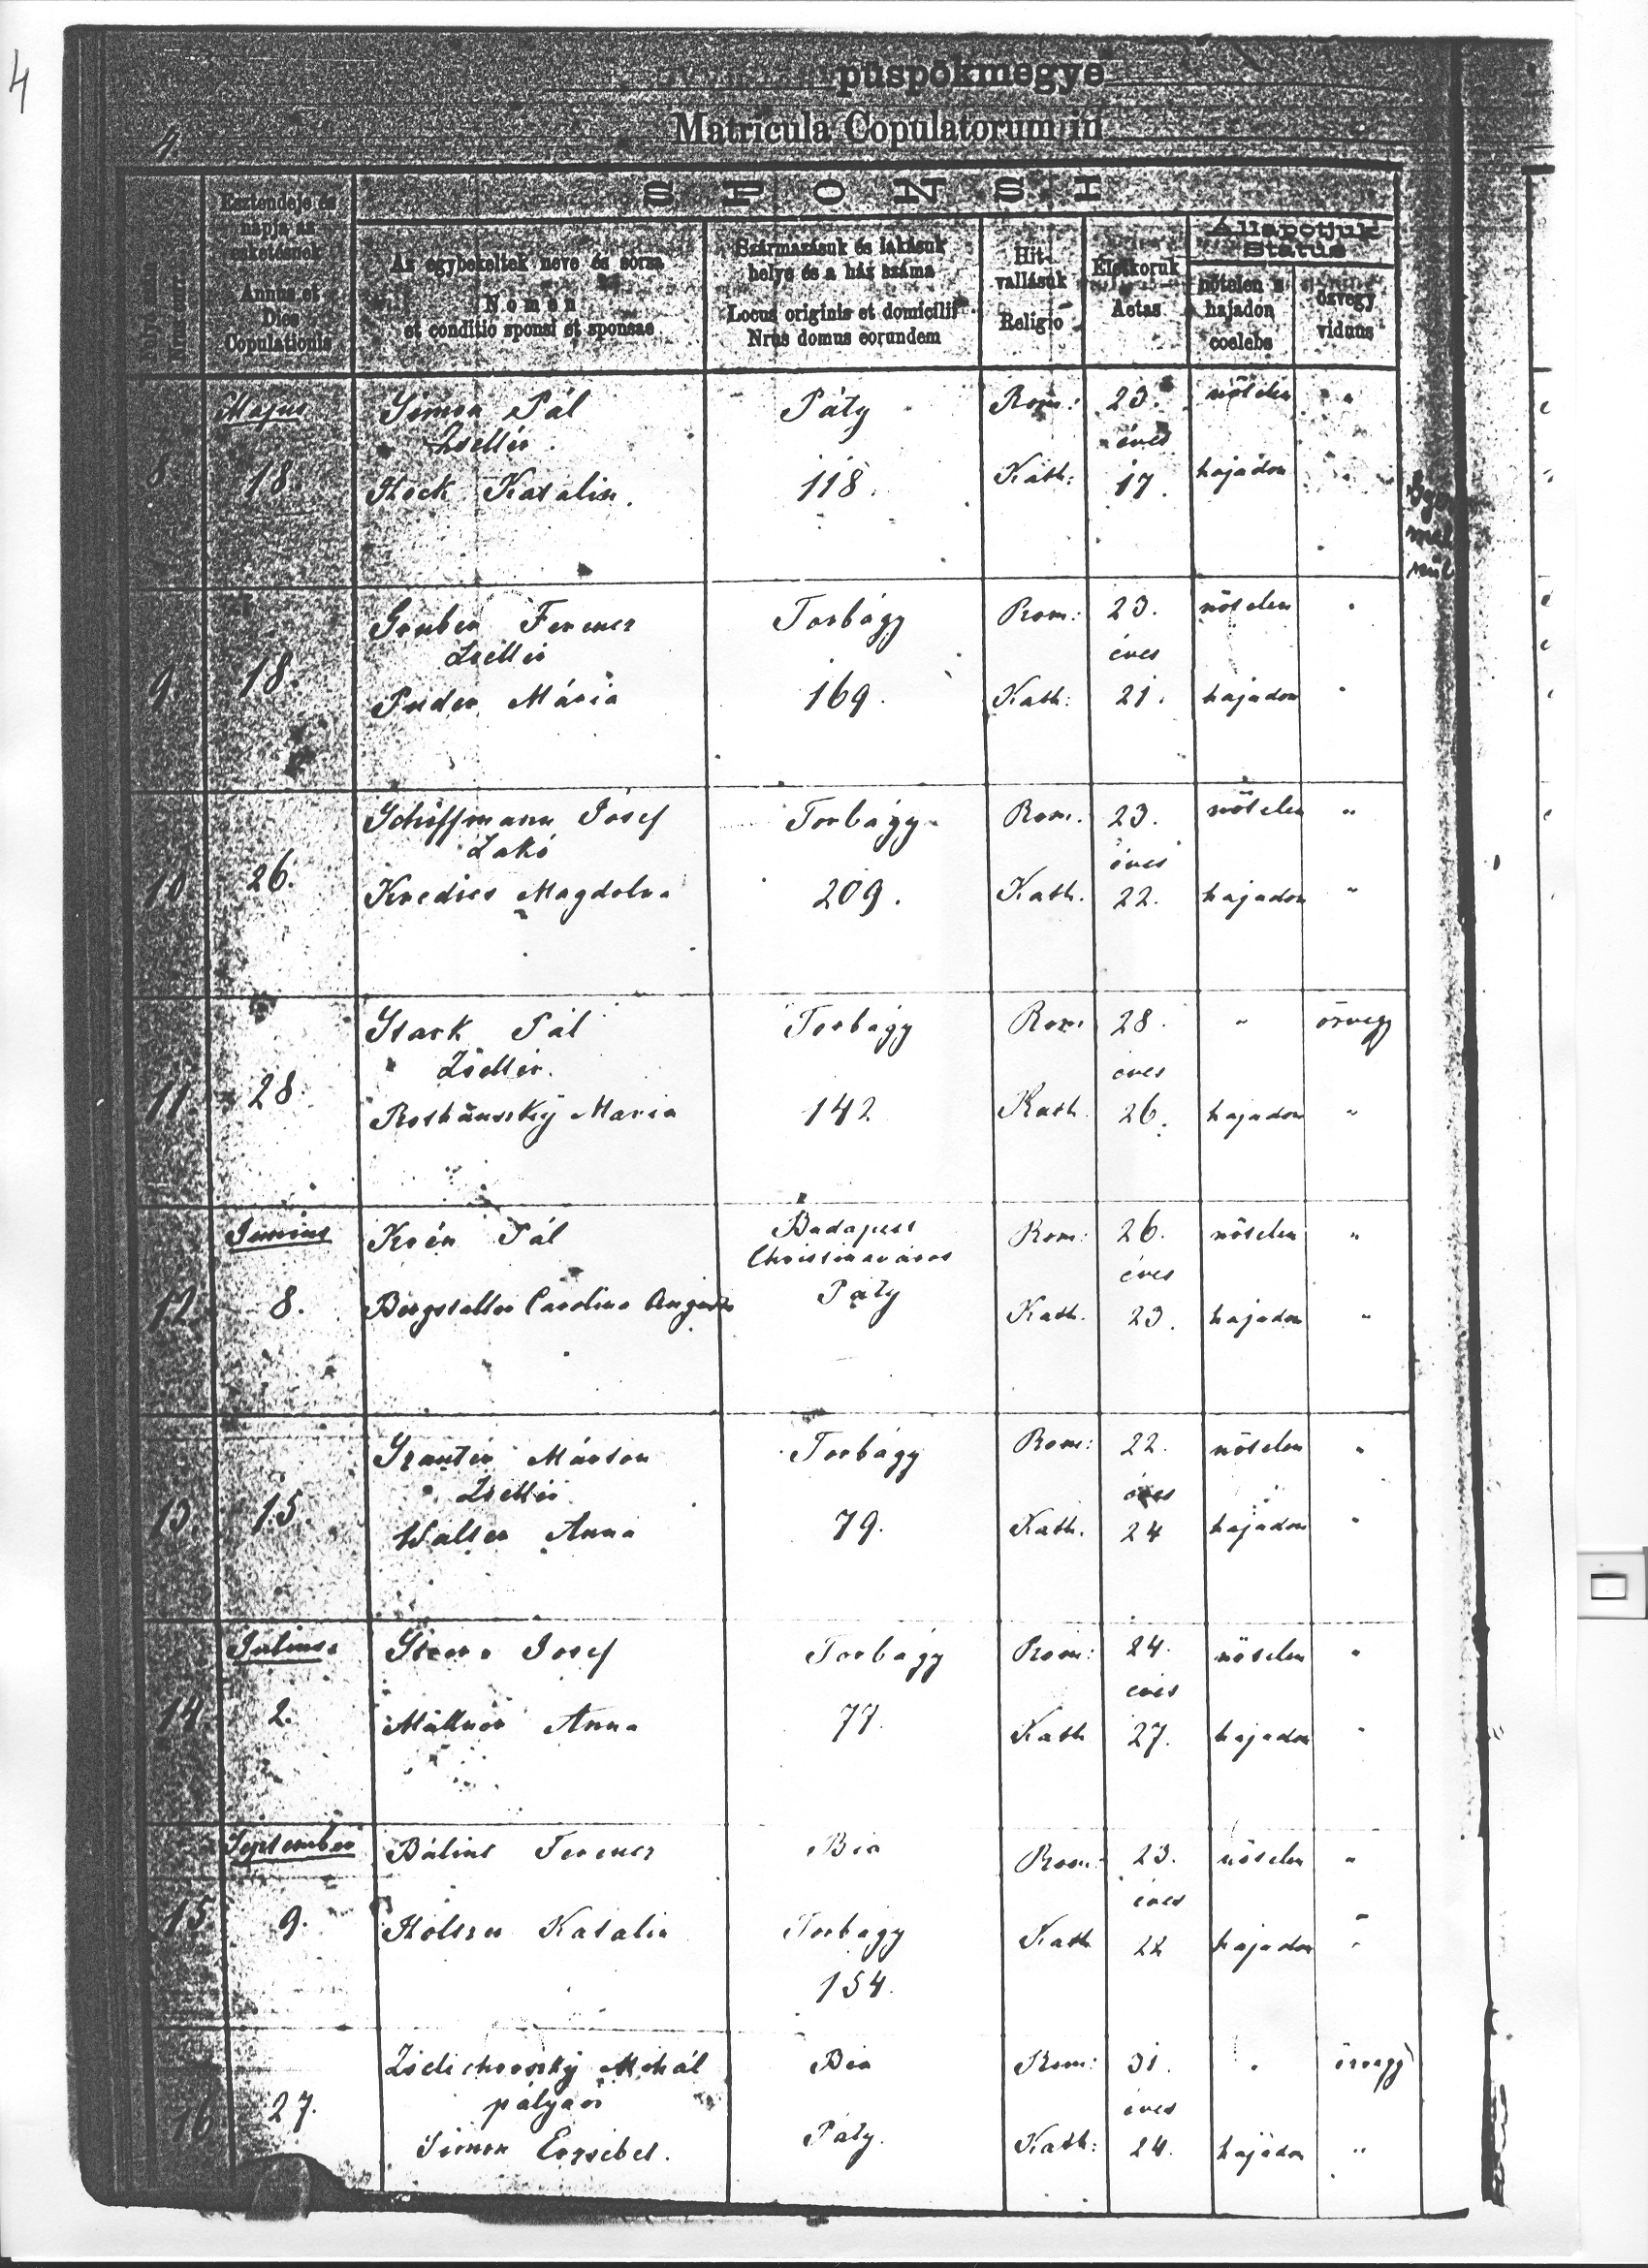 4
püspökmegye
Matricula Copulatorum in
4
SPONSI
Esztendeje és
napja az
esketésnek
Annus et
Dies
Copulationis
Az egybekeltek neve és sorsa
Nomen
et conditio sponsi et sponsae
Származásuk és lakásuk
helye és a ház száma
Locus originis et domicilii
Nrus domus eorundem
Hit-
vallásuk
Religio
Életkoruk
Aetas
Állapotjuk
Status
nőtelen s
hajadon
coelebs
özvegy
viduus
Majus Simon Pál Páty Rom: 23. nőtelen "
Zsellér éves
8 18. Keck Katalin. 118. Kath: 17. hajadon "
Gruber Ferencz Torbágy Rom: 23. nőtelen "
Zsellér éves
9 18. Pruder Mária 169. Kath: 21. hajadon "
Schiffmann Jósef Torbágy Rom. 23. nőtelen "
Lakó éves
10 26. Magdolna 209. Kath. 22. hajadon "
Stark Pál Torbágy Rom 28. " özvegy
Zsellér. éves
11 28. Maria 142 Kath. 26. hajadon "
Junius Pál Budapest Rom: 26. nőtelen "
Christinaváros éves
12 8. Carolina Páty Kath. 23. hajadon "
Márton Torbágy Rom: 22. nőtelen "
Zsellér éves
13. 15. Walter Anna 79. Kath. 24 hajadon "
Julius Josef Torbágy Rom: 24. nőtelen "
éves
14 2. Müllner Anna 77. Kath 27. hajadon "
September Bálint Ferencz Bia Rom: 23. nőtelen "
éves
15 9. Katalin Torbágy Kath 22 hajadon "
154.
Mihál Bia Rom: 31. " özvegy
pályaőr éves
16 27. Simon Erzsébet. Páty. Kath: 24. hajadon "